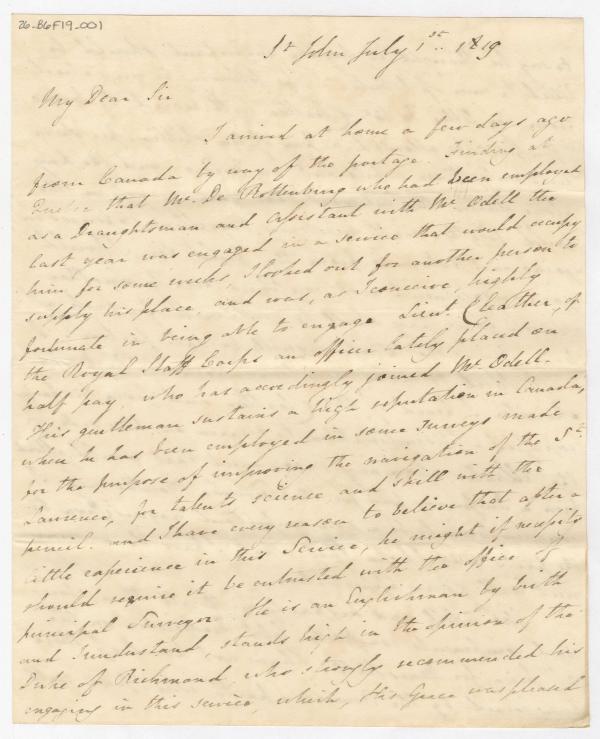 26-B6F19-001
St John July 1st. 1819
My Dear Sir
I arrived at home a few days ago
from Canada by way of the portage. Finding at
Quebec that Mr. De Rottenburg who had been employed
as a Draughtsman and Assistant with Mr Odell the
last year was engaged in a service that would occupy
him for some weeks, I looked out for another person to
supply his place, and was, as I conceive, highly
fortunate in being able to engage Lieut. Cleather, of
the Royal Staff Corps an officer lately placed on
half pay who has accordingly joined Mr. Odell.
This gentleman sustains a high reputation in Canada,
when he has been employed in some surveys made
for the purpose of improving the navigation of the St.
Laurence, for talents science and skill with the
pencil. and I have every reason to believe that after a
little experience in this Service, he might if necessity
should require it be entrusted with the office of
principal Surveyor. He is an Englishman by birth
and I understand, stands high in the opinion of the
Duke of Richmond, who strongly recommended his
engaging in this service, which, His Grace was pleased